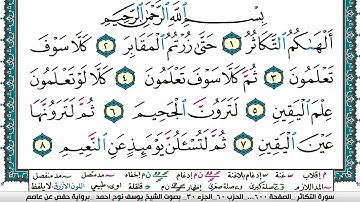 بِسْمِ اللَّهِ الرَّحْمَٰنِ الرَّحِيمِ
أَلْهَىٰكُمُ التَّكَاثُرُ ١ حَتَّىٰ زُرْتُمُ الْمَقَابِرَ ٢ كَلَّا سَوْفَ
تَعْلَمُونَ ٣ ثُمَّ كَلَّا سَوْفَ تَعْلَمُونَ ٤ كَلَّا لَوْ تَعْلَمُونَ
عِلْمَ الْيَقِينِ ٥ لَتَرَوُنَّ الْجَحِيمَ ٦ ثُمَّ لَتَرَوُنَّهَا
عَيْنَ الْيَقِينِ ٧ ثُمَّ لَتُسْـَٔلُنَّ يَوْمَئِذٍ عَنِ النَّعِيمِ ٨
سورة التكاثر الصفحة ٦٠٠ الحزب ٦٠ الجزء ٣٠ بصوت الشيخ يوسف نوح احمد برواية حفص عن عاصم